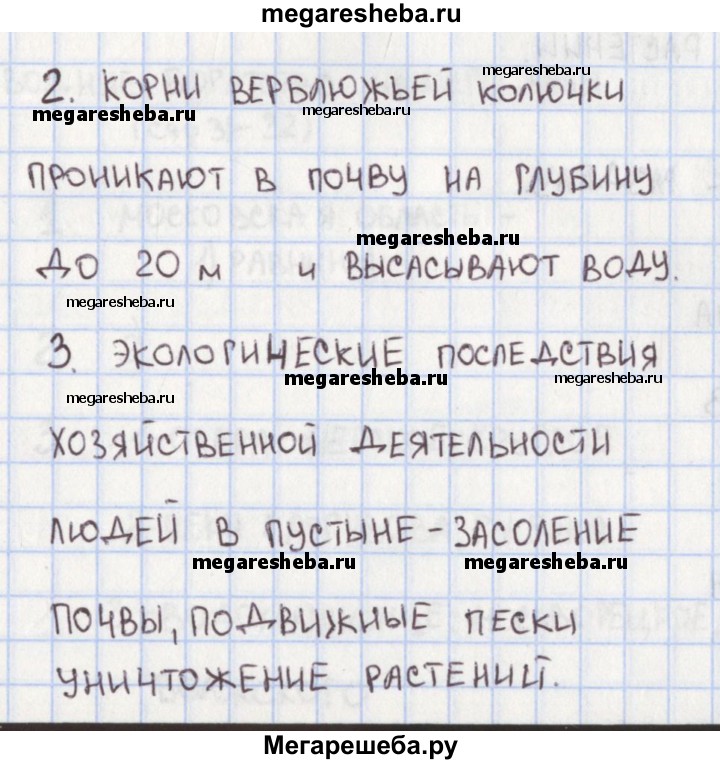 megaresheba.ru
2. КОРНИ ВЕРБЛЮЖЬЕЙ КОЛЮЧКИ
megaresheba.ru
megaresheba.ru
megaresheba.ru
ПРОНИКАЮТ В ПОЧВУ НА ГЛУБИНУ
megaresheba.ru
ДО 20 м и ВЫСАСЫВАЮТ ВОДУ.
megaresheba.ru
3. ЭКОЛОГИЧЕСКИЕ ПОСЛЕДСТВИЯ
megaresheba.ru
megaresheba.ru
megaresheba.ru
ХОЗЯЙСТВЕННОЙ ДЕЯТЕЛЬНОСТИ
ЛЮДЕЙ В ПУСТЫНЕ - ЗАСОЛЕНИЕ
megaresheba.ru
megaresheba.ru
ПОЧВЫ, ПОДВИЖНЫЕ ПЕСКИ
УНИЧТОЖЕНИЕ РАСТЕНИЙ.
Мегарешеба.ру